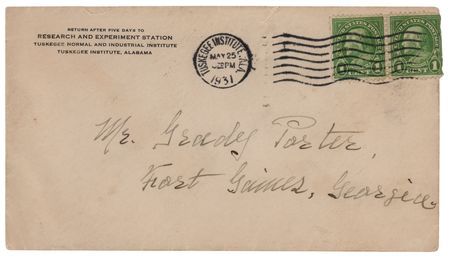 RETURN AFTER FIVE DAYS TO
RESEARCH AND EXPERIMENT STATION
TUSKEGEE NORMAL AND INDUSTRIAL INSTITUTE
TUSKEGEE INSTITUTE, ALABAMA
TUSKEGEE INSTITUTE, ALA.
MAY 25
PM
1931
1 1
Mr. Grady Porter,
Fort Gaines, Georgia.